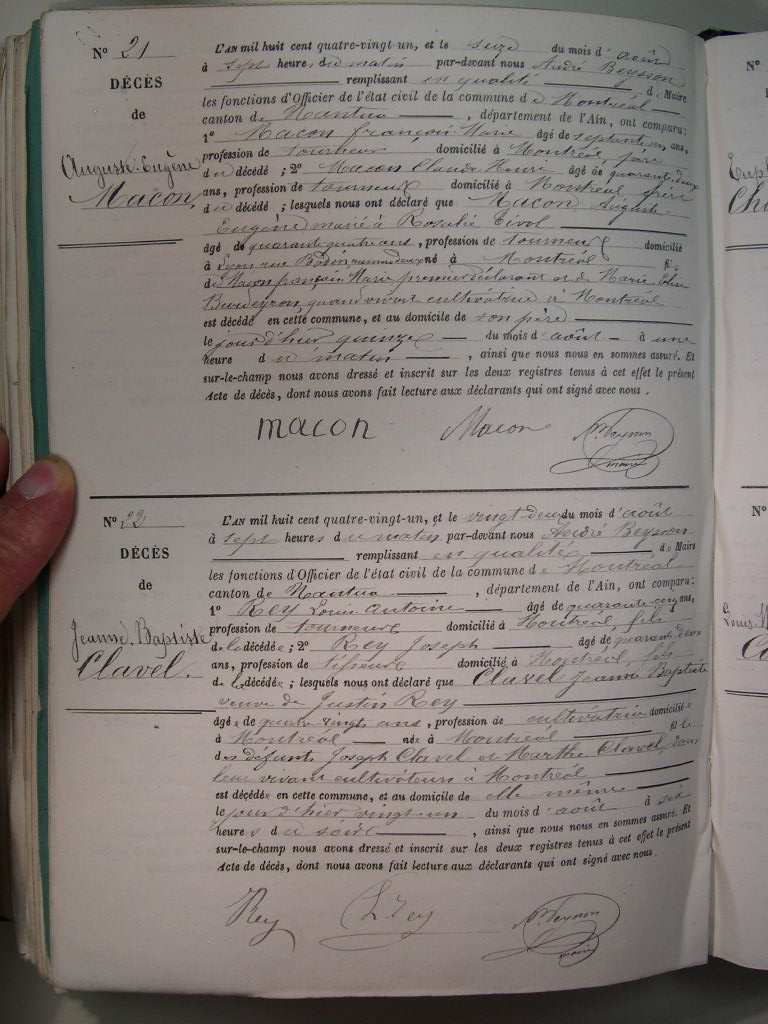 N° 21
DÉCÈS
de
Auguste Eugène
Macon
L'AN mil huit cent quatre-vingt-un, et le seize du mois d'août
à sept heures du matin par-devant nous André Beysson
remplissant en qualité de Maire
les fonctions d'Officier de l'état civil de la commune de Montréal
canton de Nantua, département de l'Ain, ont comparu:
1° Macon françois Marie âgé de septante ans,
profession de tourneur domicilié à Montréal, père
du décédé; 2° Macon Claude âgé de quarante deux
ans, profession de tourneur domicilié à Montréal frère
du décédé; lesquels nous ont déclaré que Macon Auguste
Eugène marié à Rosalie
âgé de quarante quatre ans, profession de tourneur domicilié
à Lyon rue né à Montréal fils
de Macon françois Marie premier déclarant et de Marie
quand vivait cultivatrice à Montréal
est décédé en cette commune, et au domicile de son père
le jour d'hier quinze du mois d'août à une
heure du matin, ainsi que nous nous en sommes assuré. Et
sur-le-champ nous avons dressé et inscrit sur les deux registres tenus à cet effet le présent
Acte de décès, dont nous avons fait lecture aux déclarants qui ont signé avec nous.
macon Macon
maire
N° 22
DÉCÈS
de
Jeanne Baptiste
Clavel.
L'AN mil huit cent quatre-vingt-un, et le vingt-deux du mois d'août
à sept heures du matin par-devant nous André Beysson
remplissant en qualité de Maire
les fonctions d'Officier de l'état civil de la commune de Montréal
canton de Nantua, département de l'Ain, ont comparu:
1° Rey Louis Antoine âgé de quarante cinq ans,
profession de tourneur domicilié à Montréal, fils
de la décédée; 2° Rey Joseph âgé de quarante deux
ans, profession de domicilié à Montréal, fils
de la décédée; lesquels nous ont déclaré que Clavel Jeanne Baptiste
veuve de Justin Rey
âgée de quatre vingts ans, profession de cultivatrice domiciliée
à Montréal née à Montréal fille
des défunts Joseph Clavel et Marthe Clavel dans
leur vivant cultivateurs à Montréal
est décédée en cette commune, et au domicile de elle même
le jour d'hier vingt-un du mois d'août à six
heures du soir, ainsi que nous nous en sommes assuré. Et
sur-le-champ nous avons dressé et inscrit sur les deux registres tenus à cet effet le présent
Acte de décès, dont nous avons fait lecture aux déclarants qui ont signé avec nous.
Rey L rey
maire
N°
N°